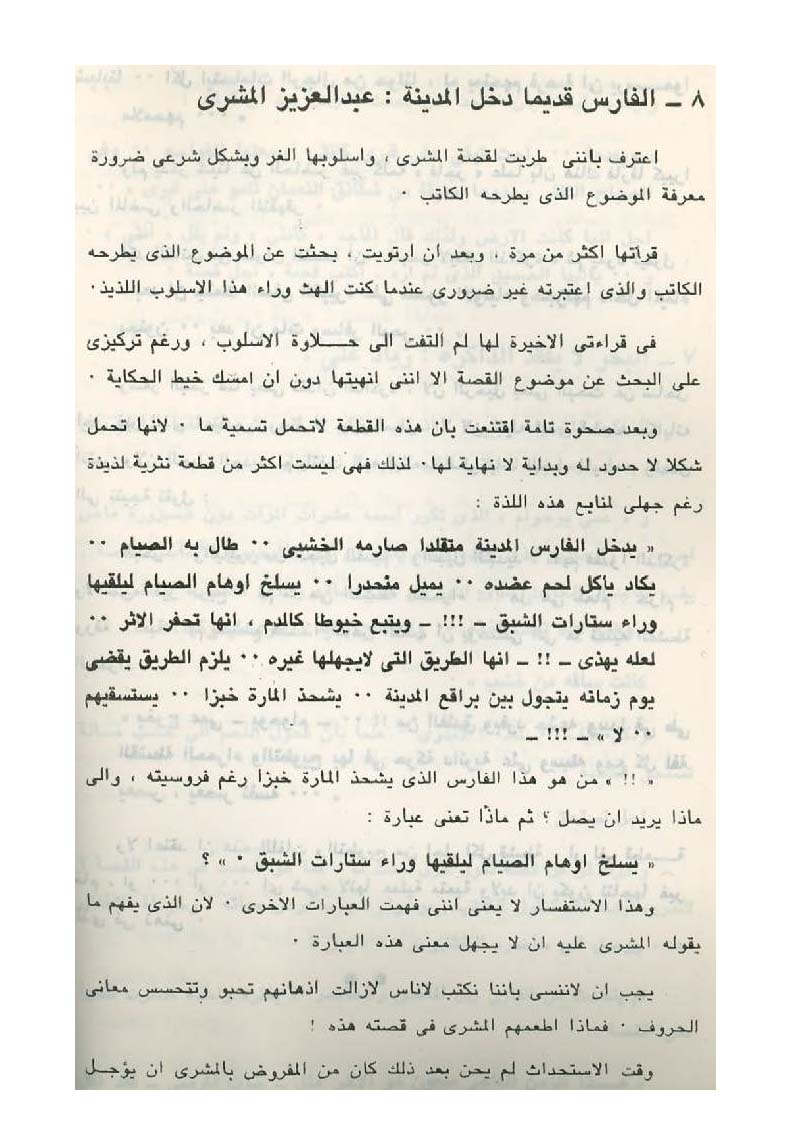 ٨ ــ الفارس قديما دخل المدينة : عبدالعزيز المشرى
اعترف باننى طربت لقصة المشرى ، واسلوبها الغر وبشكل شرعى ضرورة
معرفة الموضوع الذى يطرحه الكاتب ٠
قراتها اكثر من مرة ، وبعد ان ارتويت ، بحثت عن الموضوع الذى يطرحه
الكاتب والذى اعتبرته غير ضرورى عندما كنت الهث وراء هذا الاسلوب اللذيذ٠
فى قراءتى الاخيرة لها لم التفت الى حــلاوة الاسلوب ، ورغم تركيزى
على البحث عن موضوع القصة الا اننى انهيتها دون ان امسك خيط الحكاية ٠
وبعد صحوة تامة اقتنعت بان هذه القطعة لاتحمل تسمية ما ٠ لانها تحمل
شكلا لا حدود له وبداية لا نهاية لها٠ لذلك فهى ليست اكثر من قطعة نثرية لذيذة
رغم جهلى لمنابع هذه اللذة :
« يدخل الفارس المدينة متقلدا صارمه الخشبى ٠٠ طال به الصيام ٠٠
يكاد ياكل لحم عضده ٠٠ يميل منحدرا ٠٠ يسلخ اوهام الصيام ليلقيها
وراء ستارات الشبق ــ !!! ــ ويتبع خيوطا كالدم ، انها تحفر الاثر ٠٠
لعله يهذى ــ !! ــ انها الطريق التى لايجهلها غيره ٠٠ يلزم الطريق يقضى
يوم زمانه يتجول بين براقع المدينة ٠٠ يشحذ المارة خبزا ٠٠ يستسقيهم
٠٠ لا » ــ !!! ــ
« !! » من هو هذا الفارس الذى يشحذ المارة خبزا رغم فروسيته ، والى
ماذا يريد ان يصل ؟ ثم ماذا تعنى عبارة :
« يسلخ اوهام الصيام ليلقيها وراء ستارات الشبق ٠ » ؟
وهذا الاستفسار لا يعنى اننى فهمت العبارات الاخرى ٠ لان الذى يفهم ما
يقوله المشرى عليه ان لا يجهل معنى هذه العبارة ٠
يجب ان لاننسى باننا نكتب لاناس لازالت اذهانهم تحبو وتتحسس معانى
الحروف ٠ فماذا اطعمهم المشرى فى قصته هذه !
وقت الاستحداث لم يحن بعد ذلك كان من المفروض بالمشرى ان يؤجـل